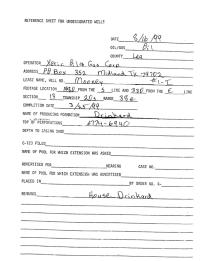 REFERENCE SHEET FOR UNDESIGNATED WELLS
DATE 8/16/99
OIL/GAS Oil
COUNTY Lea
OPERATOR Xeric Oil & Gas Corp
ADDRESS PO Box 352 Midland Tx 79702
LEASE NAME, WELL NO. Mooney #1-I
FOOTAGE LOCATION FROM THE S LINE AND 330 FROM THE E LINE
SECTION TOWNSHIP 20s RANGE 38e
COMPLETION DATE 3/25/99
NAME OF PRODUCING FORMATION Drinkard
TOP OF PERFORATIONS 6774-6940
DEPTH TO CASING SHOE
C-123 FILED
NAME OF POOL FOR WHICH EXTENSION WAS ASKED
ADVERTISED FOR HEARING CASE NO.
NAME OF POOL FOR WHICH EXTENSION WAS ADVERTISED
PLACED IN BY ORDER NO. R-
REMARKS House Drinkard